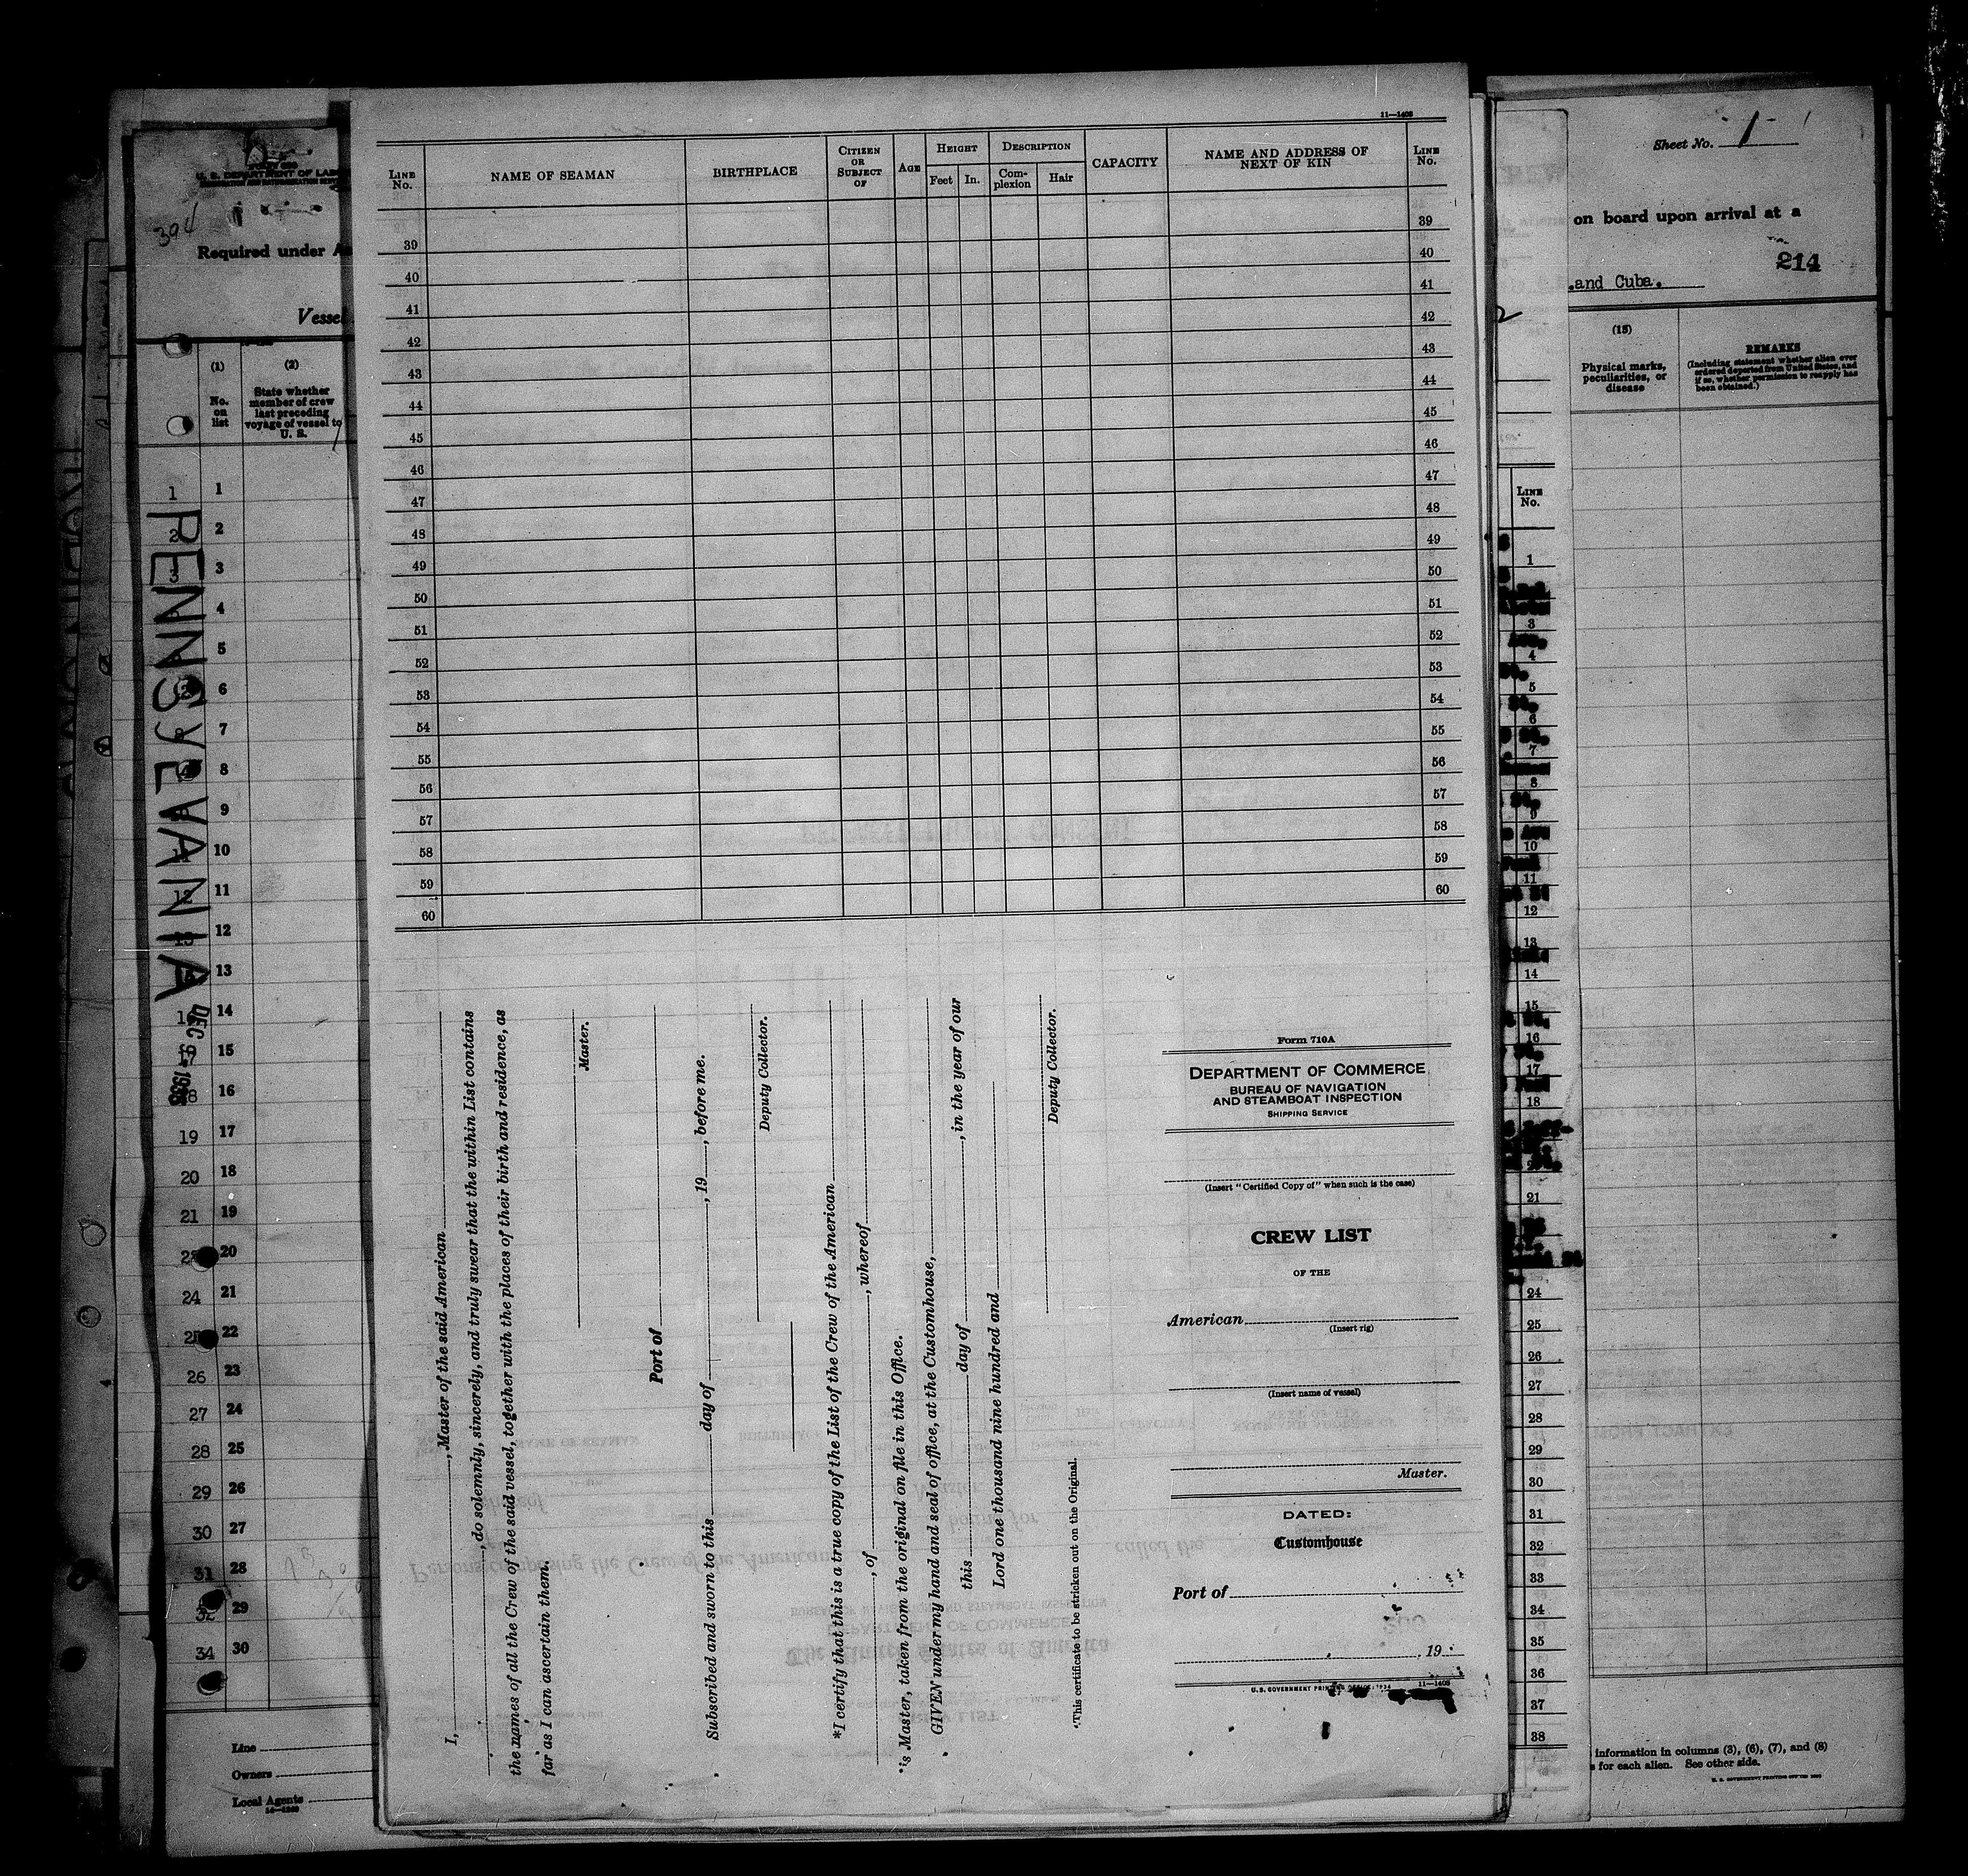 U. S. DEPARTMENT OF LABOR
394
Required under A
Vessel
(1)
No.
on
list
(2)
State whether
member of crew
last preceding
voyage of vessel to
U. S.
1 1
2 2
3 3
4
5
6
7
8
9
10
11
12
13
14
15
16
19 17
20 18
21 19
20
24 21
22
26 23
27 24
28 25
29 26
30 27
31 28
32 29
34 30
PENNSYLVANIA
DEC
1936
Line
Owners
Local Agents
14—1240
11—1408
LINE
No.
NAME OF SEAMAN
BIRTHPLACE
CITIZEN
OR
SUBJECT
OF
AGE
HEIGHT
Feet In.
DESCRIPTION
Com-
plexion
Hair
CAPACITY
NAME AND ADDRESS OF
NEXT OF KIN
LINE
No.
39 39
40 40
41 41
42 42
43 43
44 44
45 45
46 46
47 47
48 48
49 49
50 50
51 51
52 52
53 53
54 54
55 55
56 56
57 57
58 58
59 59
60 60
I, , Master of the said American
, do solemnly, sincerely, and truly swear that the within List contains
the names of all the Crew of the said vessel, together with the places of their birth and residence, as
far as I can ascertain them.
Master.
Port of
Subscribed and sworn to this day of , 19 , before me.
Deputy Collector.
*I certify that this is a true copy of the List of the Crew of the American
, of , whereof
is Master, taken from the original on file in this Office.
GIVEN under my hand and seal of office, at the Customhouse,
this day of , in the year of our
Lord one thousand nine hundred and
Deputy Collector.
*This certificate to be stricken out on the Original.
Form 710A
DEPARTMENT OF COMMERCE
BUREAU OF NAVIGATION
AND STEAMBOAT INSPECTION
SHIPPING SERVICE
(Insert "Certified Copy of" when such is the case)
CREW LIST
OF THE
American
(Insert rig)
(Insert name of vessel)
Master.
DATED:
Customhouse
Port of
, 19
U. S. GOVERNMENT PRINTING OFFICE: 1934 11—1408
LINE
No.
1
3
4
5
6
7
8
9
10
11
12
13
14
15
16
17
18
21
24
25
26
27
28
29
30
31
32
33
34
35
36
37
38
Sheet No. 1
on board upon arrival at a
214
.and Cuba.
(15)
Physical marks,
peculiarities, or
disease
REMARKS
(Including statement whether alien ever
ordered deported from United States, and
if so, whether permission to reapply has
been obtained.)
information in columns (3), (6), (7), and (8)
s for each alien. See other side.